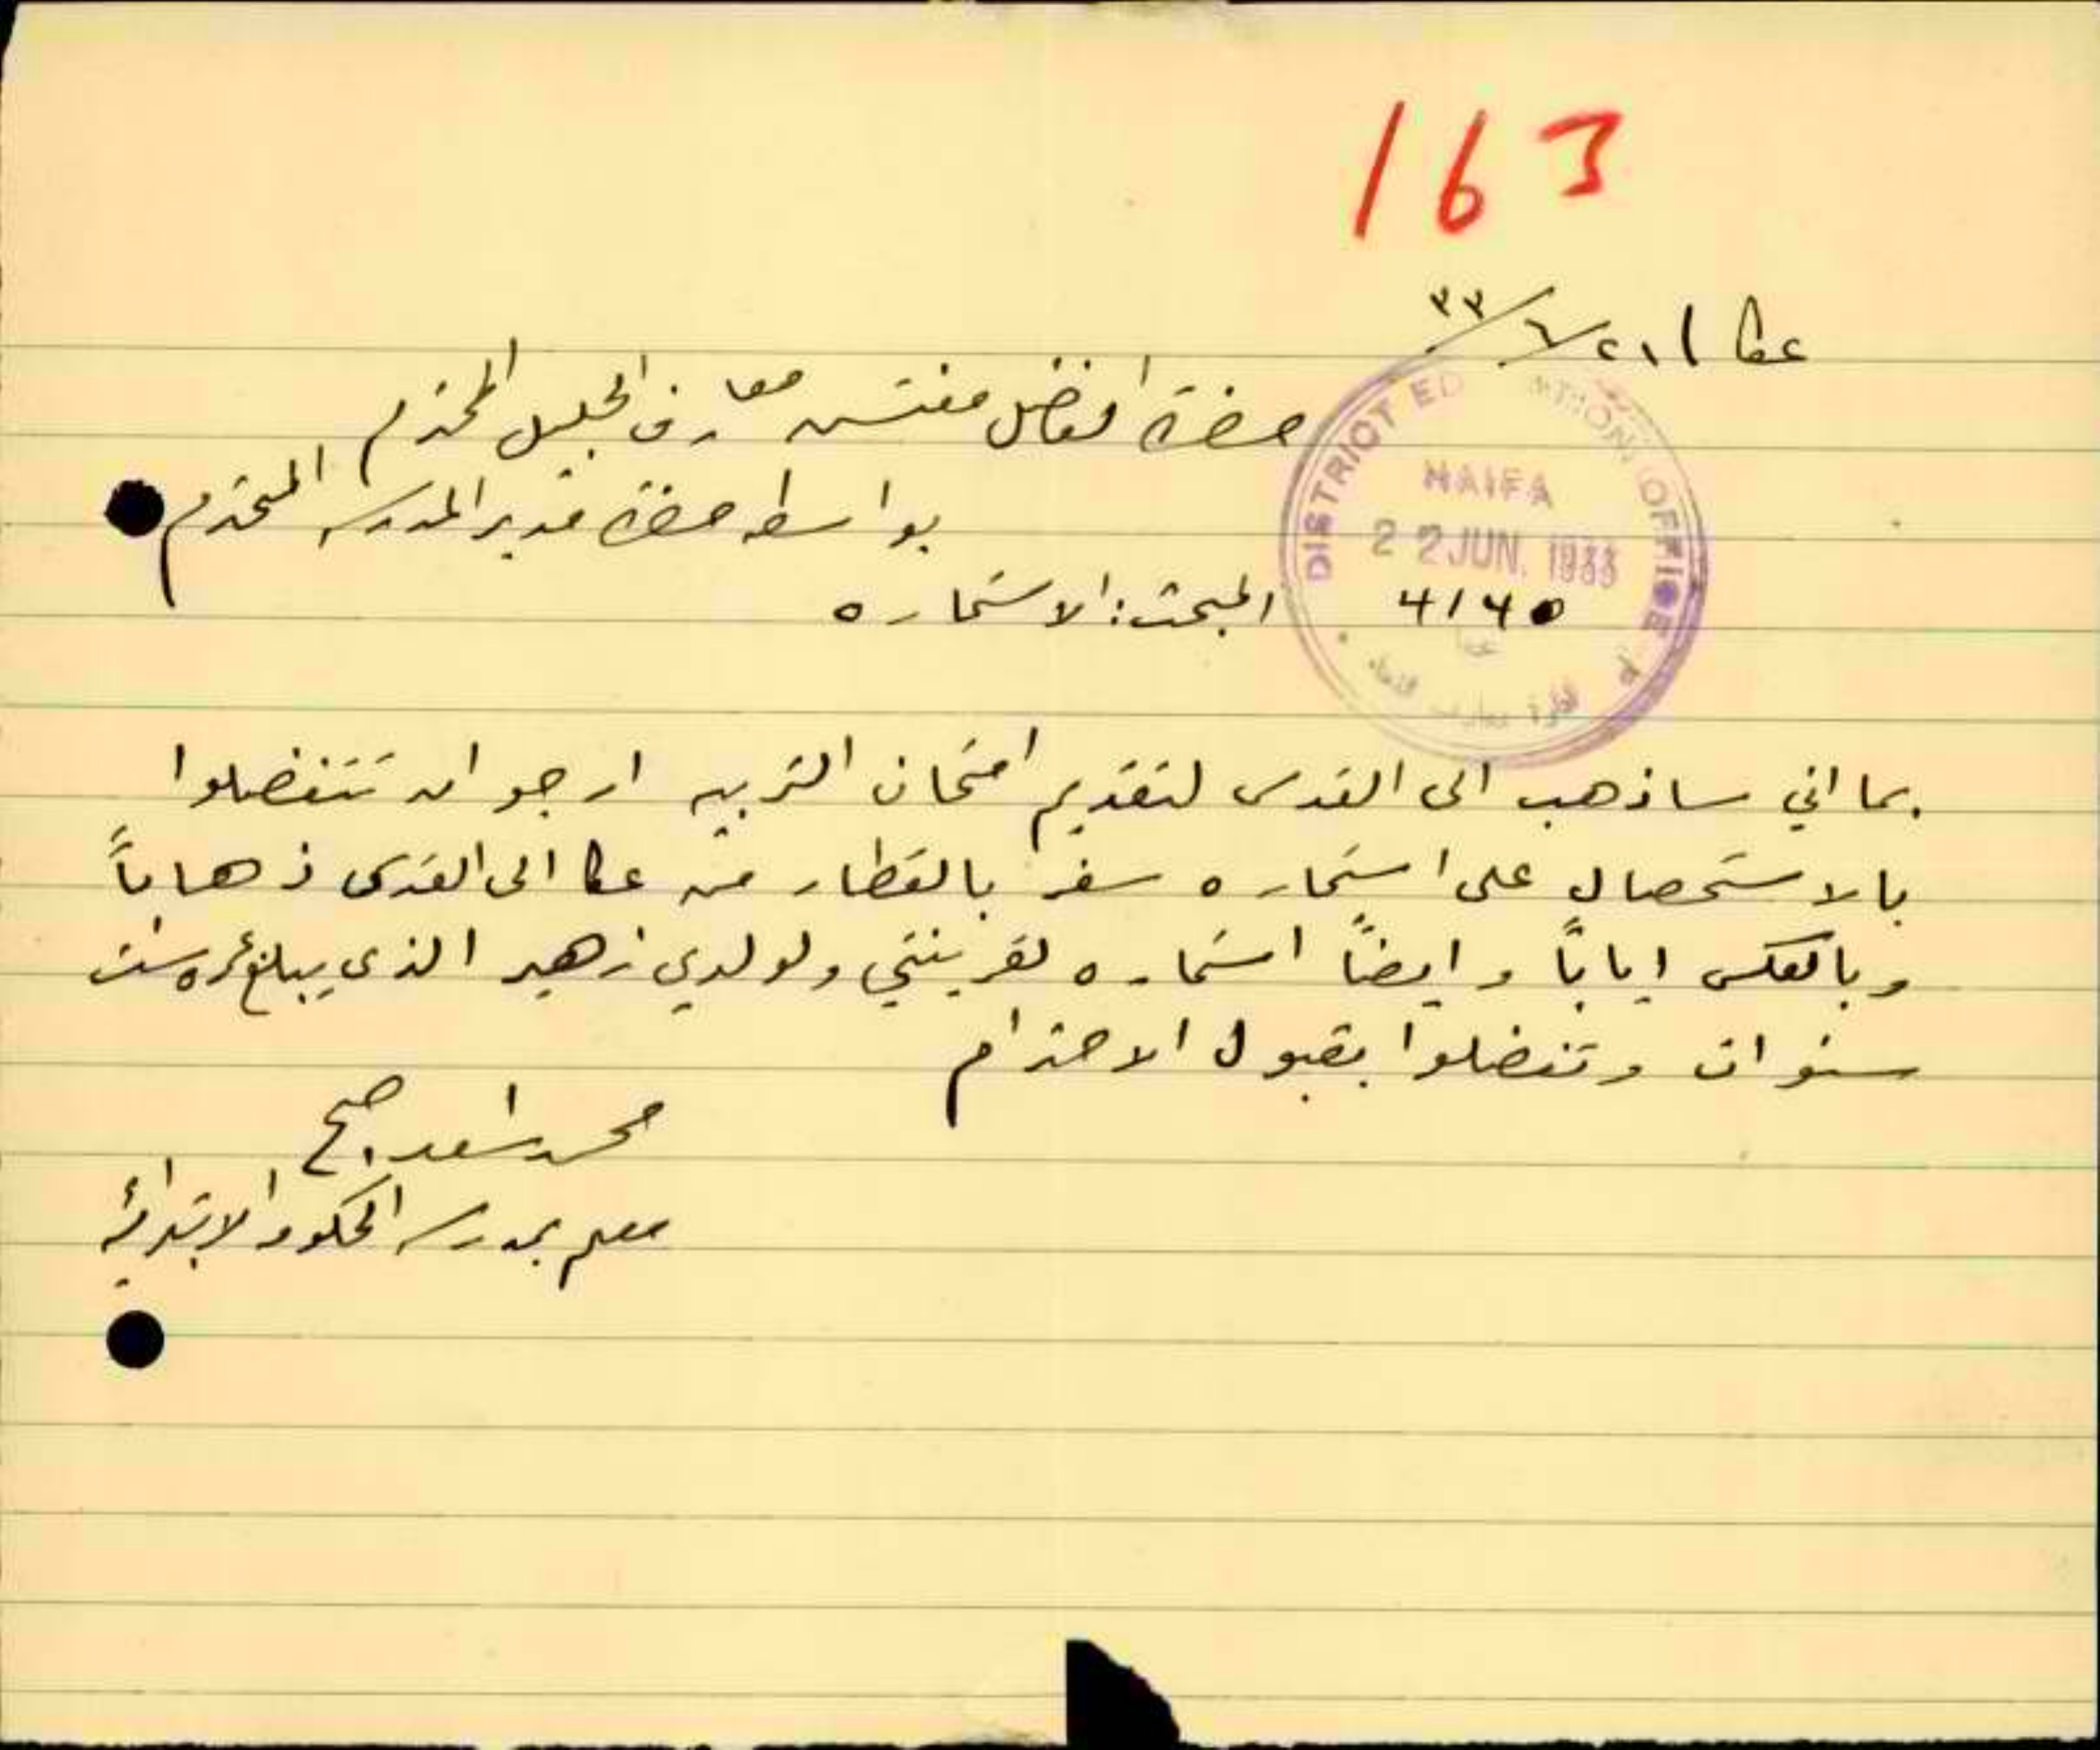 163
عكا ٢١/٦/٣٣
حضرة الفاضل مفتش معارف الجليل المحترم
بواسطه حضرة مدير المدرسه المحترم
DISTRICT EDUCATION OFFICE
HAIFA
22 JUN. 1933
4140
المبحث: الاستماره
بما اني ساذهب الى القدس لتقديم امتحان التربيه ارجو ان تتفضلوا
بالاستحصال على استماره سفر بالقطار من عكا الى القدس ذهاباً
وبالعكس اياباً وايضاً استماره لقرينتي ولولدي زهير الذي يبلغ عمره ست
سنوات وتفضلوا بقبول الاحترام
محمد اسعد
معلم بمدرسه الحكومه الابتدائيه